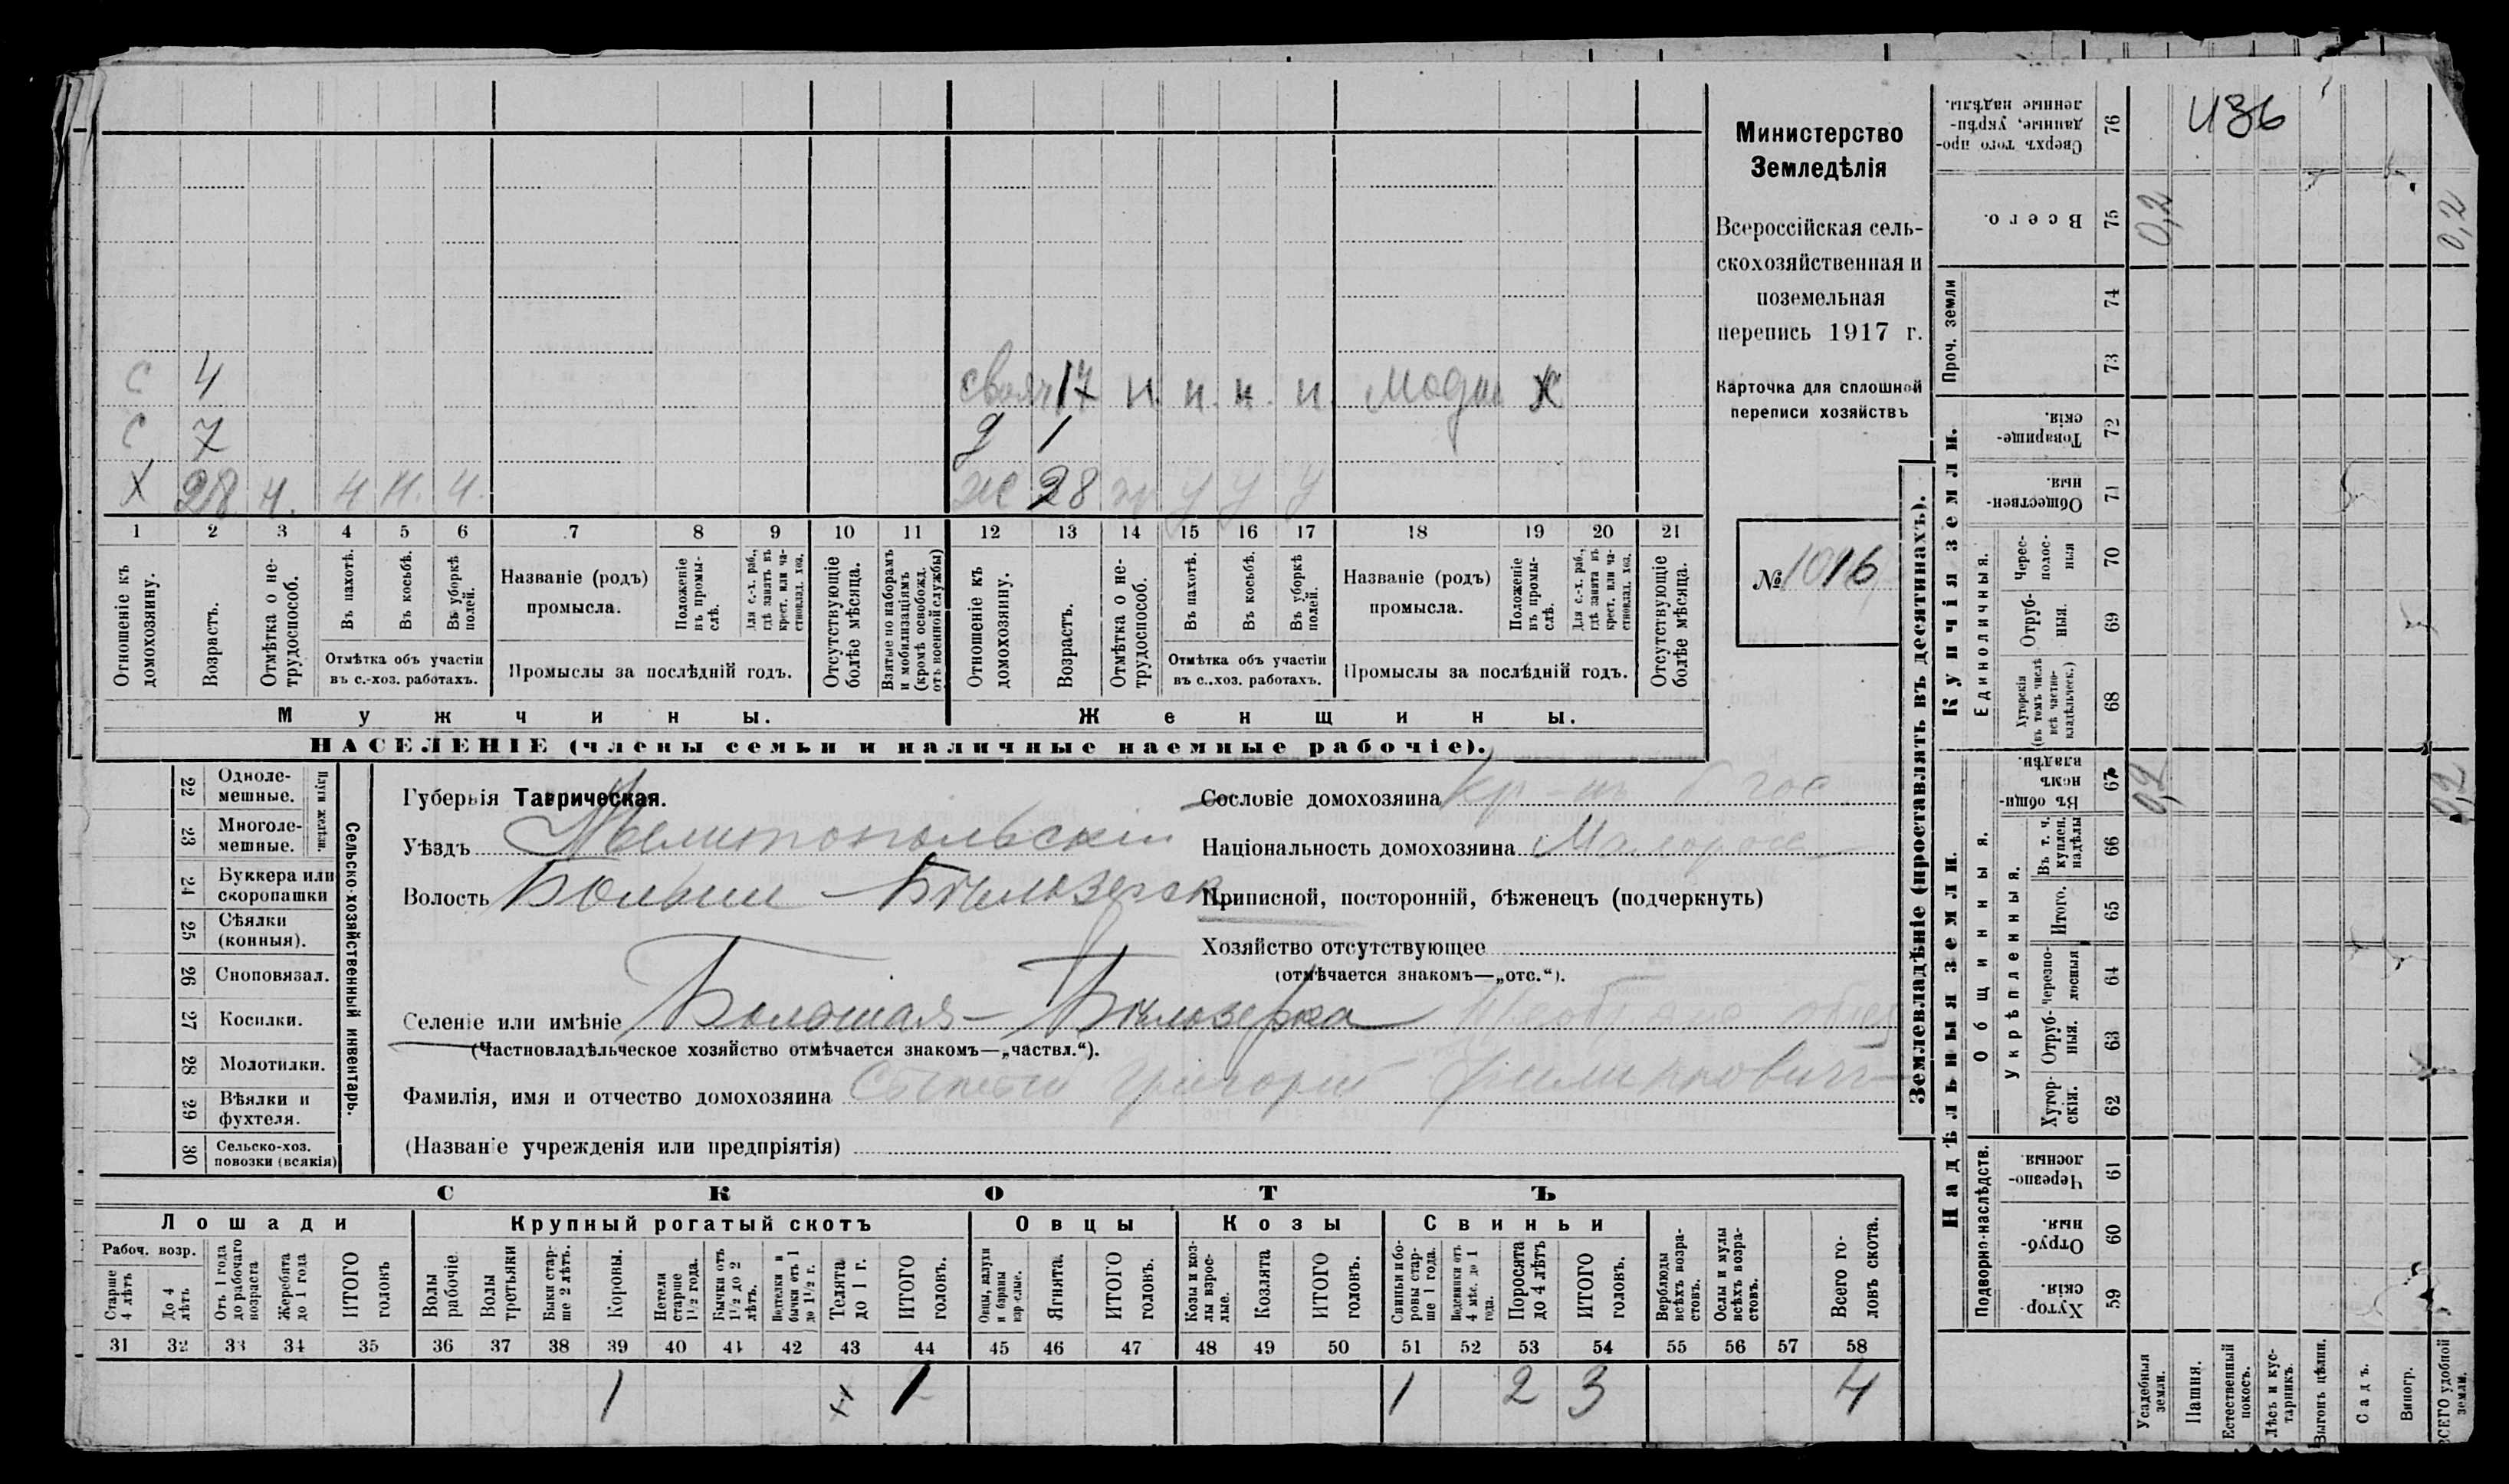 436
Министерство
Земледѣлія
Всероссійская сель-
скохозяйственная и
поземельная
перепись 1917 г.
Карточка для сплошной
переписи хозяйствъ
№ 1016
С 4
17 н. н. н. н.
С 7
д 1
Х 28 ч. ч н. ч.
ж 28 у у у
1 2 3 4 5 6 7 8 9 10 11 12 13 14 15 16 17 18 19 20 21
Отношеніе къ домохозяину.
Возрастъ.
Отмѣтка о не-трудоспособ.
Въ пахотѣ.
Въ косьбѣ.
Въ уборкѣ полей.
Отмѣтка объ участіи
въ с.-хоз. работахъ.
Названіе (родъ)
промысла.
Положеніе въ промы-слѣ.
Для с.-х. раб., гдѣ занятъ въ крест. или ча-стновлад. хоз.
Промыслы за послѣдній годъ.
Отсутствующіе болѣе мѣсяца.
Взятые по наборамъ и мобилизаціямъ (кромѣ освобожд. отъ военной службы)
Отношеніе къ домохозяину.
Возрастъ.
Отмѣтка о не-трудоспособ.
Въ пахотѣ.
Въ косьбѣ.
Въ уборкѣ полей.
Отмѣтка объ участіи
въ с..хоз. работахъ.
Названіе (родъ)
промысла.
Положеніе въ промы-слѣ.
Для с.-х. раб., гдѣ занята въ крест. или ча-стновлад. хоз.
Промыслы за послѣдній годъ.
Отсутствующіе болѣе мѣсяца.
Мужчины.
Женщины.
НАСЕЛЕНІЕ (члены семьи и наличные наемные рабочіе).
Сельско-хозяйственный инвентарь.
Плуги желѣзн.
22 Одноле-мешные.
23 Многоле-мешные.
24 Буккера или скоропашки
25 Сѣялки (конныя).
26 Сноповязал.
27 Косилки.
28 Молотилки.
29 Вѣялки и фухтеля.
30 Сельско-хоз. повозки (всякія)
Губернія Таврическая.
Уѣздъ Мелитопольскій
Волость Больше-Бѣлозерск
Селеніе или имѣніе Большая-Бѣлозерка
(Частновладѣльческое хозяйство отмѣчается знакомъ—„частвл.“).
Фамилія, имя и отчество домохозяина Григорій Филипповичъ
(Названіе учрежденія или предпріятія)
Сословіе домохозяина кр-нъ б. гос.
Національность домохозяина Малоросс
Приписной, посторонній, бѣженецъ (подчеркнуть)
Хозяйство отсутствующее
(отмѣчается знакомъ—„отс.“).
СКОТЪ
Лошади
Крупный рогатый скотъ
Овцы
Козы
Свиньи
Рабоч. возр.
Старше 4 лѣтъ
До 4 лѣтъ
Отъ 1 года до рабочаго возраста
Жеребята до 1 года
ИТОГО головъ
Волы рабочіе
Волы третьяки
Быки стар-ше 2 лѣтъ.
Коровы.
Нетели старше 1½ года.
Бычки отъ 1½ до 2 лѣтъ.
Подтелки и бычки отъ 1 до 1½ г.
Телята до 1 г.
ИТОГО головъ.
Овцы, валухи и бараны взрослые.
Ягнята.
ИТОГО головъ.
Козы и коз-лы взрос-лые.
Козлята
ИТОГО головъ.
Свиньи и бо-ровы стар-ше 1 года.
Подсвинки отъ 4 мѣс. до 1 года.
Поросята до 4 лѣтъ
ИТОГО головъ.
Верблюды всѣхъ возра-стовъ.
Ослы и мулы всѣхъ возра-стовъ.
Всего го-ловъ скота.
31 32 33 34 35 36 37 38 39 40 41 42 43 44 45 46 47 48 49 50 51 52 53 54 55 56 57 58
1 1 1 2 3 4
Землевладѣніе (проставлять въ десятинахъ).
Купчія земли.
Надѣльныя земли.
Сверхъ того про-данные, укрѣп-ленные надѣлы. 76
Всего. 75 0,2 0,2
Проч. земли 74 73
Товарище-скія 72
Обществен-ныя. 71
Единоличныя.
Черес-полос-ныя 70
Отруб-ныя. 69
Хуторскія (въ томъ числѣ всѣ частно-владѣльческ.) 68
Общинныя.
Въ общи-номъ владѣн. 67 0,2 0,2
Укрѣпленныя.
Въ т. ч. куплен. надѣлы 66
Итого. 65
Черезпо-лосныя 64
Отруб-ныя. 63
Хутор-скія. 62
Подворно-наслѣдств.
Черезпо-лосныя. 61
Отруб-ныя. 60
Хутор-скія. 59
Усадебныя земли.
Пашня.
Естественный покосъ.
Лѣсъ и кус-тарникъ.
Выгонъ цѣлин.
Садъ.
Виногр.
ВСЕГО удобной земли.